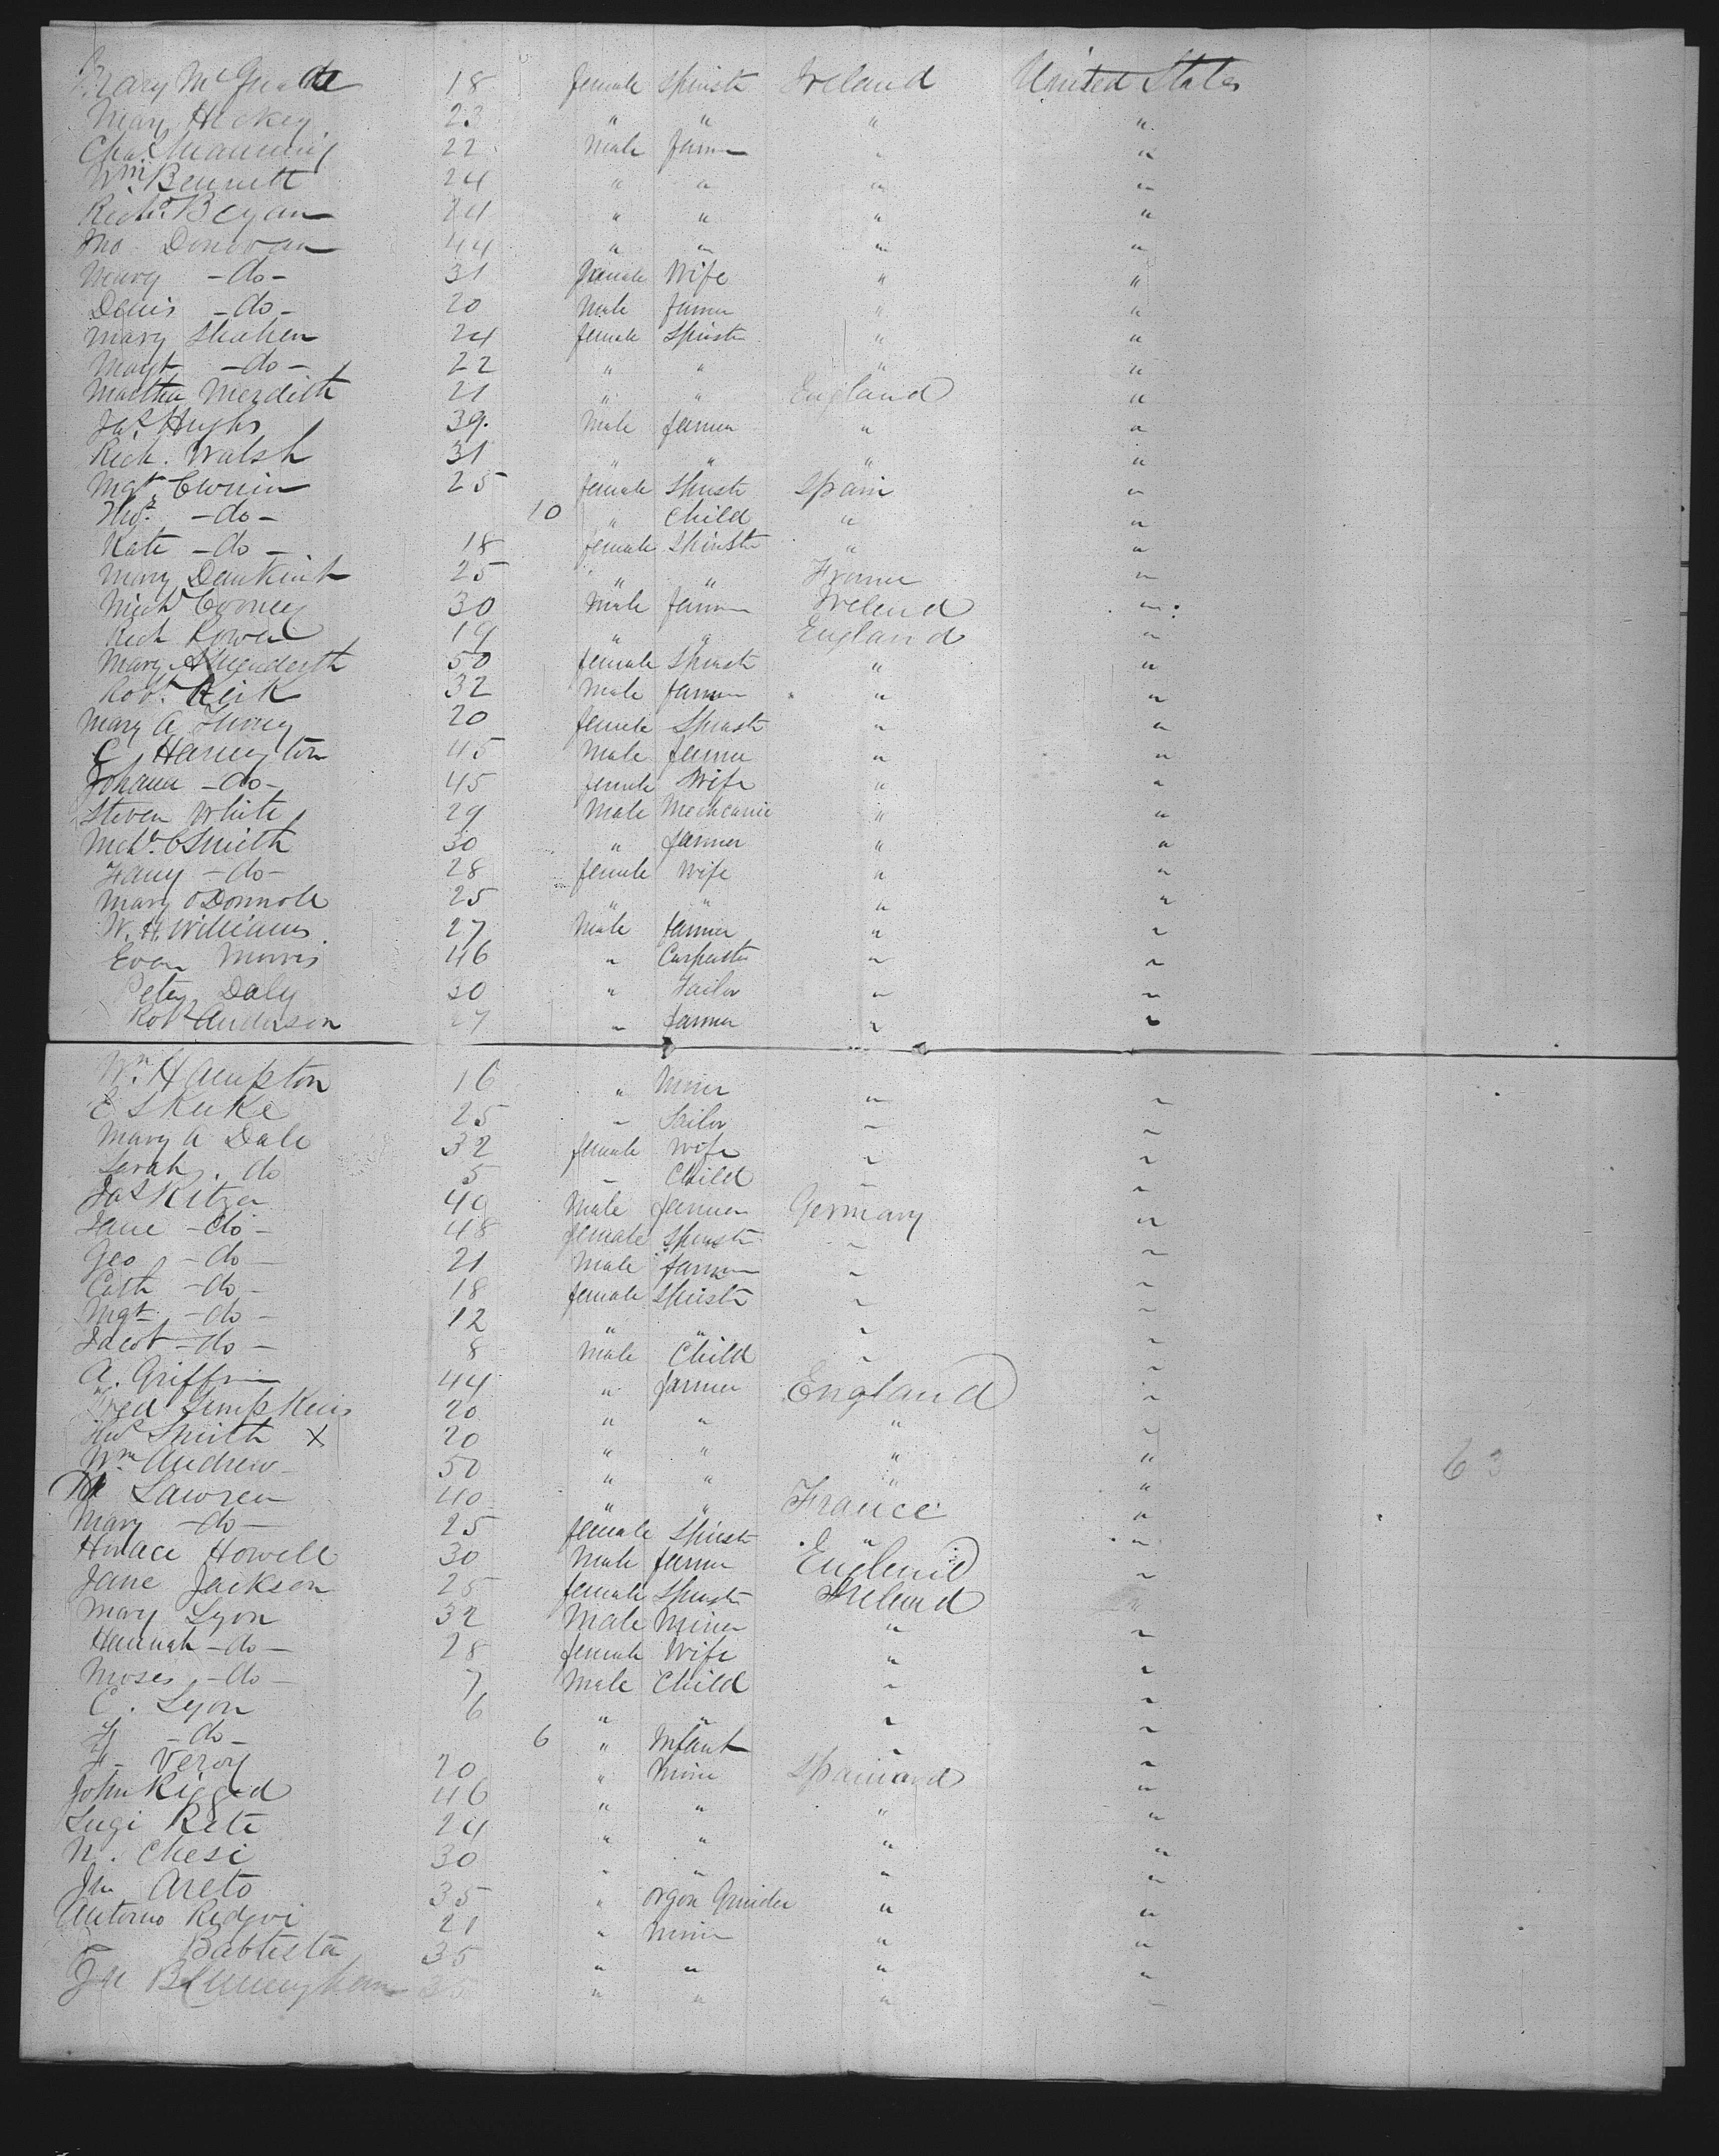 Mary McGuade 18 female Spinstr Ireland United States
Mary Hickey 23 " " " "
Chas Manning 22 Male farmer " "
Wm. Bennett 24 " " " "
Richd. Bryan 24 " " " "
Jno Donovan 44 " " " "
Mary -do- 31 female Wife " "
Denis -do- 20 Male farmer " "
Mary Shahen 24 female Spinstr " "
Magt -do- 22 " " " "
Martha Merdith 21 " " England "
Jas Hughs 39. Male farmer " "
Rich. Walsh 31 " " " "
Mgt. Cronin 25 female Spinstr Spain "
Thos. -do- 10 " Child " "
Kate -do- 18 female Spinstr " "
Mary 25 " " France "
Michl Cooney 30 Male farmer Ireland "
Rich Power 19 " " England "
Mary A 50 female Spinstr " "
Robt. Keik 32 Male farmer " "
Mary A 20 female Spinstr " "
C Harrington 45 Male farmer " "
Johana -do- 45 female Wife " "
Steven White 29 Male Mechcanic " "
Michl. Smith 30 " farmer " "
Fany -do- 28 female Wife " "
Mary O'Donnoll 25 " " " "
W. H. Williams 27 Male farmer " "
Evan Morris 46 " Carpenter " "
Peter Daly 30 " Tailor " "
Robt Anderson 27 " farmer " "
Wm. Hampton 16 " Miner " "
E Skuke 25 " Sailor " "
Mary A Dale 32 female Wife " "
Sarah . do 5 " Child " "
Jas Kitzer 49 Male farmer Germany "
Jane -do- 48 female Spinstr " "
Geo -do- 21 Male farmer " "
Cath -do- 18 female Spinstr " "
Mgt -do- 12 " " " "
Jacob -do- 8 Male Child " "
A. Griffin 44 " farmer England "
Fred Simpkins 20 " " " "
Smith x 20 " " " "
Wm Andrew 50 " " " " 63
M Lawren 40 " " France "
Mary -do- 25 female Spinstr " "
Horace Howell 30 Male farmer England "
Jane Jackson 25 female Spinstr Ireland "
Mary Lyon 32 Male Miner " "
Hannah -do- 28 female Wife " "
Moses -do- 7 Male Child " "
C. Lyon 6 " " " "
-do- 6 " Infant " "
F- Veroy 20 " Miner Spaniard "
John Rigged 46 " " " "
Lugi Rete 24 " " " "
N. Chesi 30 " " " "
Jn Areto 35 " organ Grinder " "
Antonio Redovi 21 " Miner " "
Babtista 35 " " " "
Jn 35 " " " "